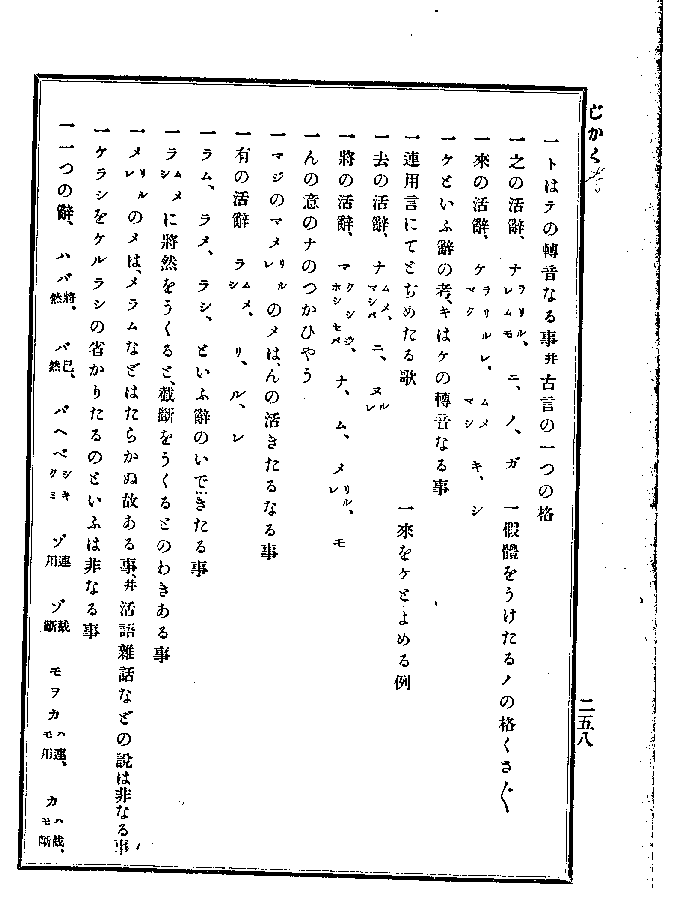 じかく考
一トはテの轉音なる事幷古言の一つの格
一之の活辭、ナラリル、レムモ ニ、ノ、ガ 一假體をうけたるノの格くさ〴〵
一來の活辭、ケラリルレ、マク ムメ マシ キ、シ
一ケといふ辭の考、キはケの轉音なる事
一連用言にてとぢめたる歌 一來をケとよめる例
一去の活辭、ナムメ、マシベ ニ、ヌルレ
一將の活辭、マクシジ、ホシセベ ナ、ム、メリル、レ モ
一んの意のナのつかひやう
一マジのマメリルレのメは、んの活きたるなる事
一有の活辭 ラムメ、シ リ、ル、レ
一ラム、ラメ、ラシ、といふ辭のいできたる事
一ラムメシに將然をうくると、截斷をうくるとのわきある事
一メリルレのメは、メラムなどはたらかぬ故ある事、幷活語雜話などの說は非なる事
一ケラシをケルラシの省かりたるのといふは非なる事
一一つの辭、ハバ將然 バ已然、バヘベシキクミ ゾ連用 ゾ截斷 モヲカハモ連用、カハモ截斷、
二五八